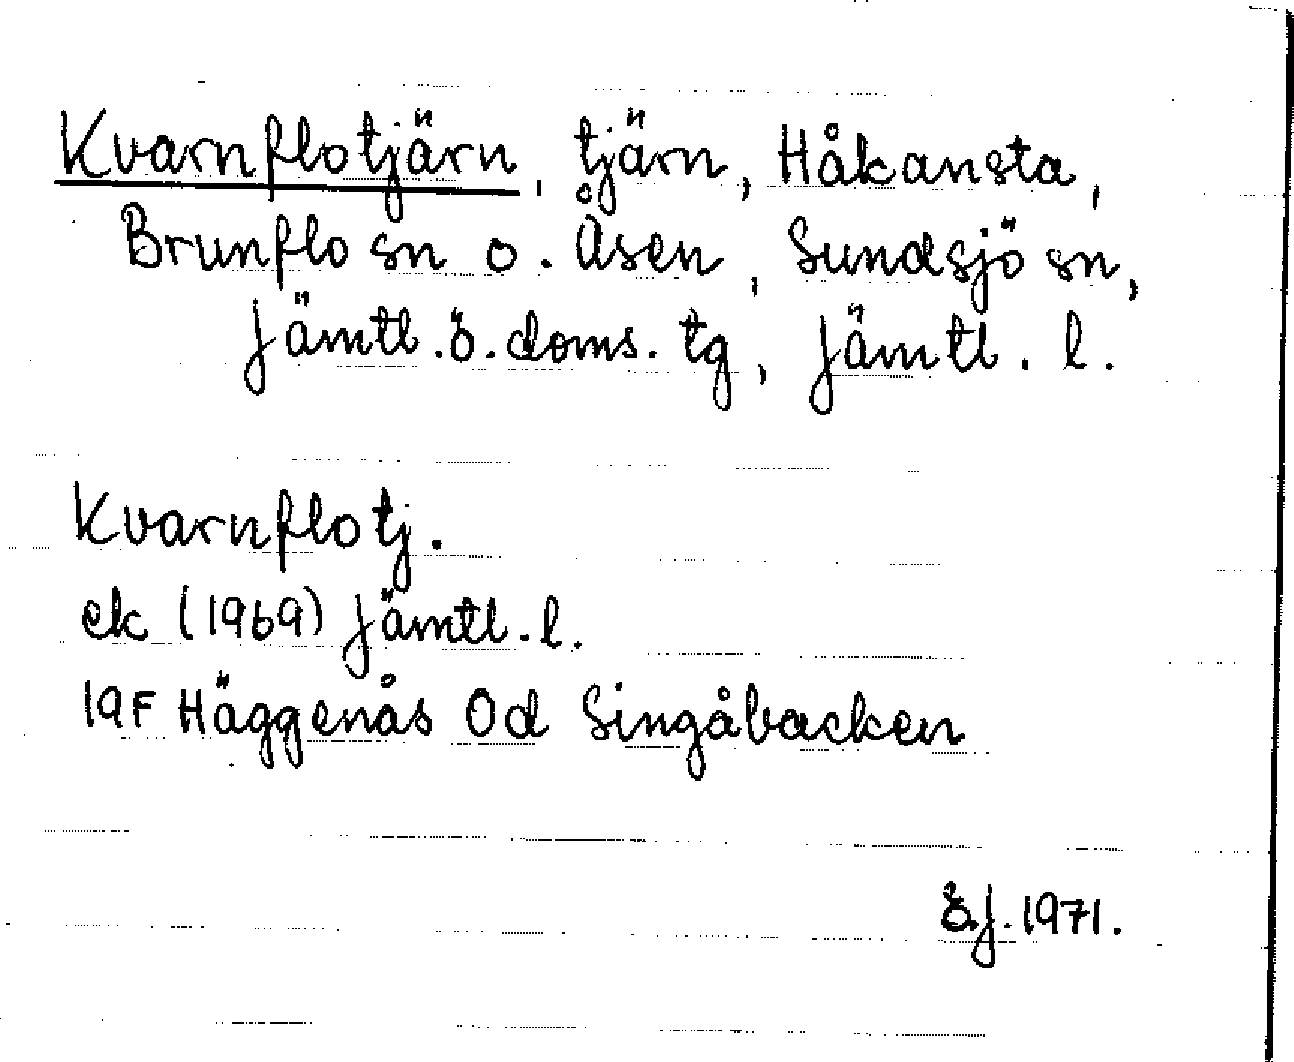 Kvarnflotjärn, tjärn, Håkansta,
Brunflo sn o. Åsen, Sundsjö sn,
Jämtl. ö. doms. tg, Jämtl. l.
Kvarnflotj.
ek (1969) Jämtl. l.
19F Häggenås 0d Singåbacken
1971.